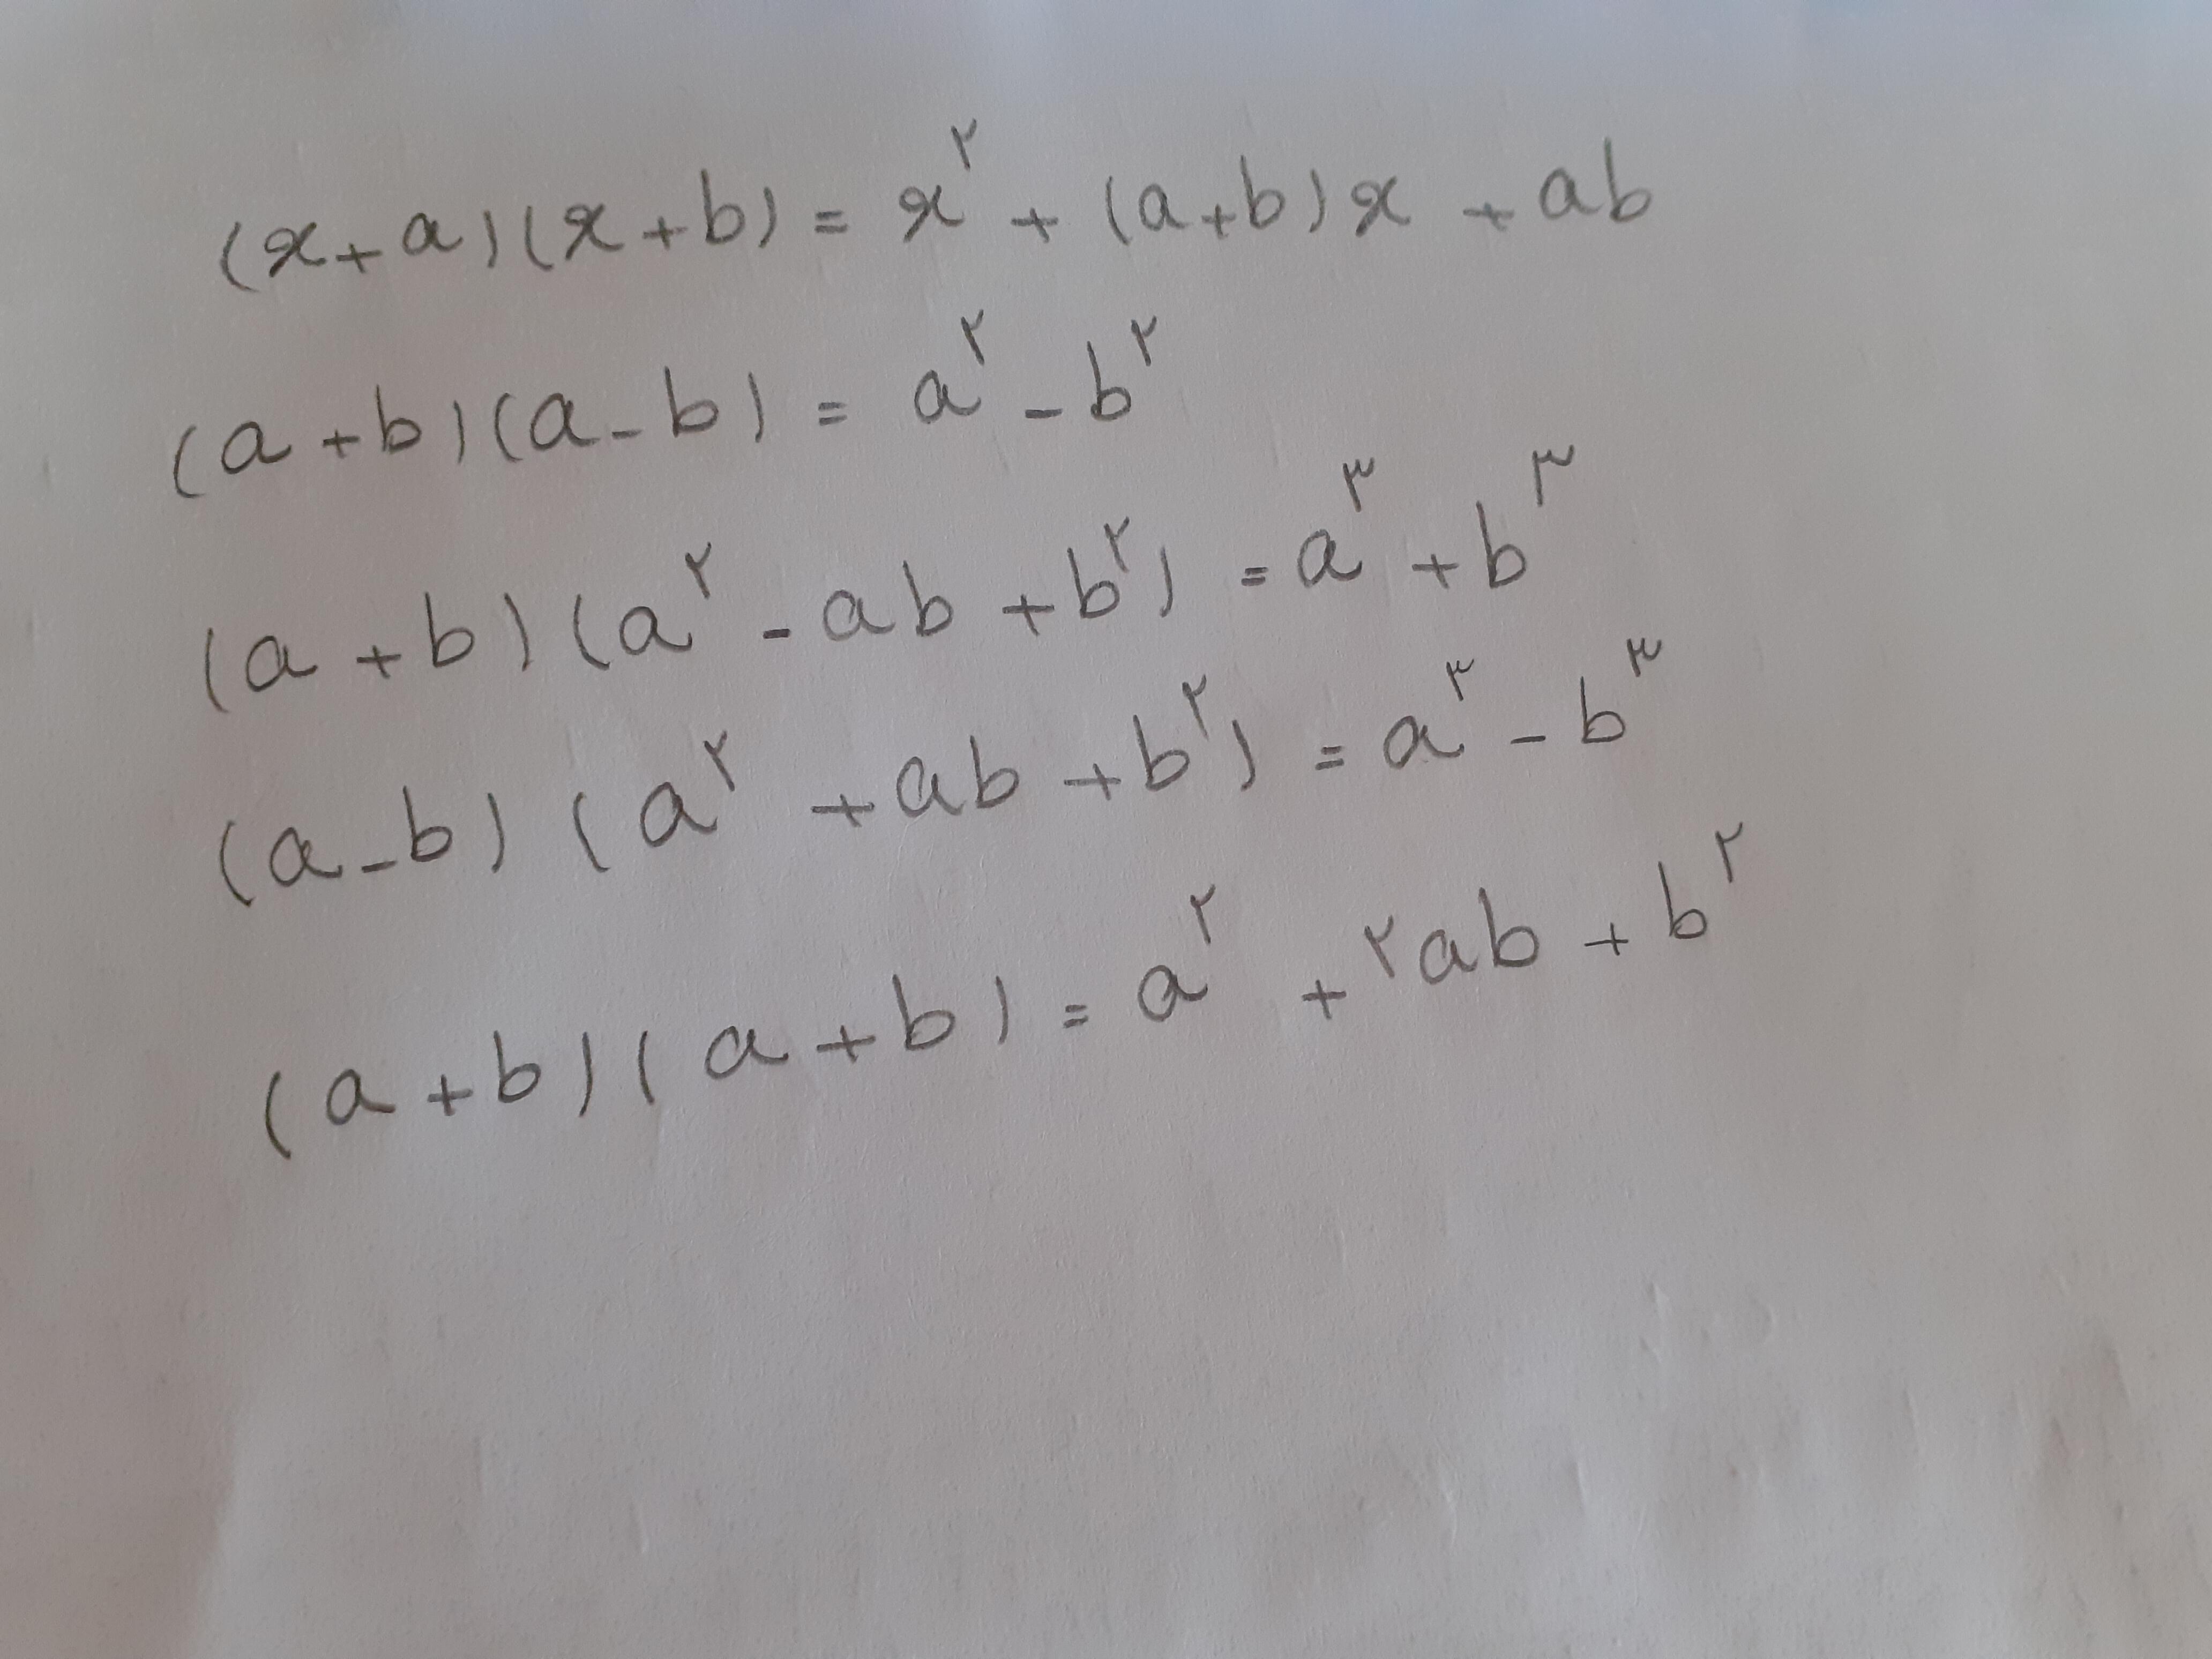 (x+a)(x+b) = x^۲ + (a+b)x + ab
(a+b)(a-b) = a^۲ - b^۲
(a+b)(a^۲ - ab + b^۲) = a^۳ + b^۳
(a-b)(a^۲ + ab + b^۲) = a^۳ - b^۳
(a+b)(a+b) = a^۲ + ۲ab + b^۲